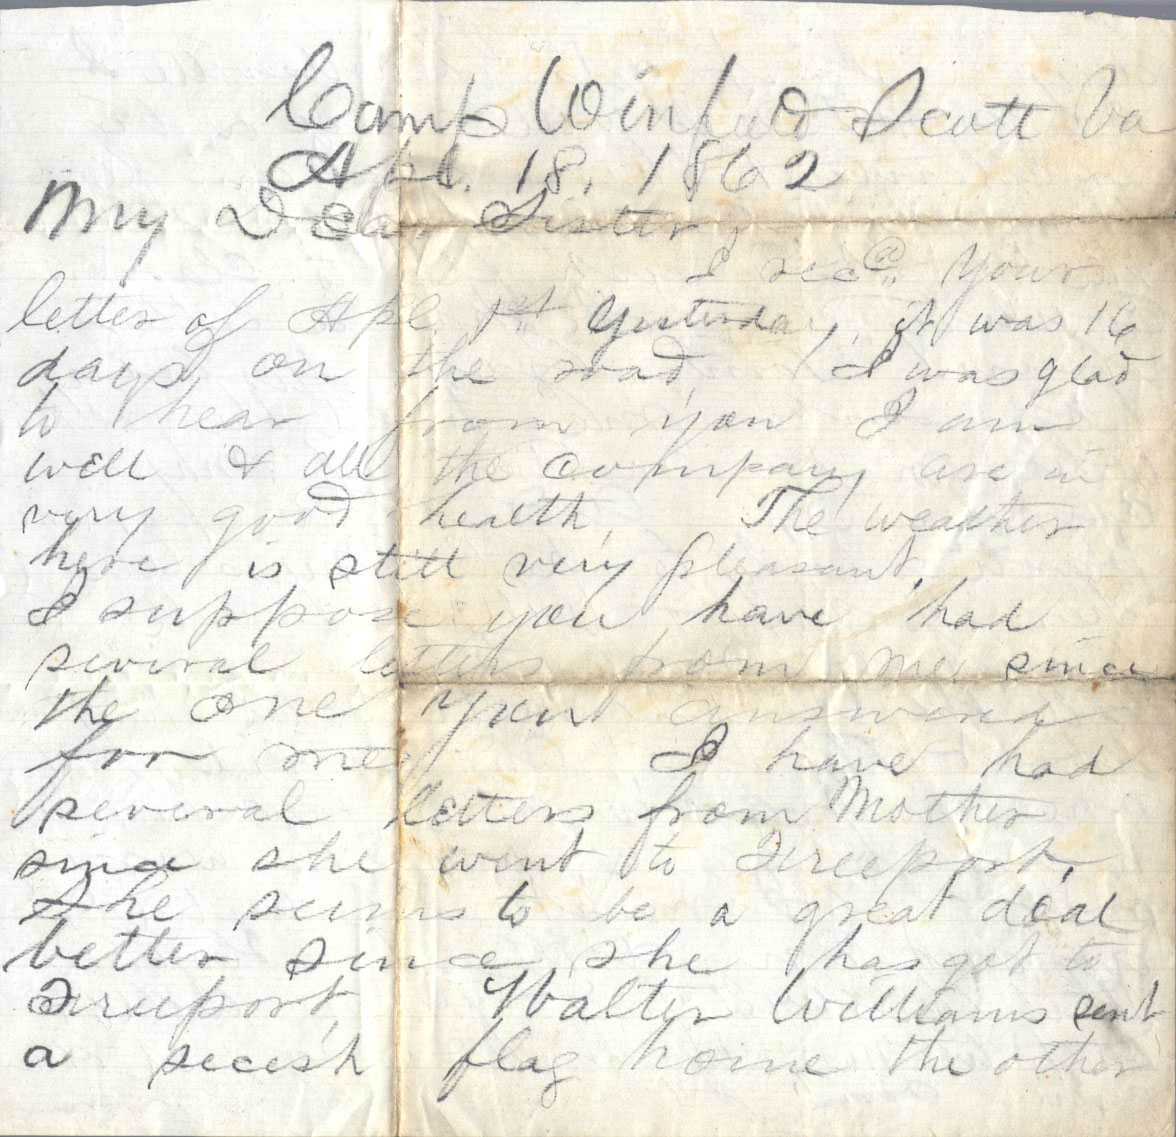 Camp Winfield Scott Va
Apl. 18. 1862
My Dear Sister,
I rec@. Your
letter of Apl. 1st Yesterday, it was 16
days, on the road, I was glad
to hear from you I am
well & all the company are in
very good health, The weather
here is still very pleasant,
I suppose you have had
several letters from me since
the one you answered
for me, I have had
several letters from Mother
since she went to Freeport,
She seems to be a great deal
better since she has got to
Freeport, Walter Williams sent
a secesh flag home the other